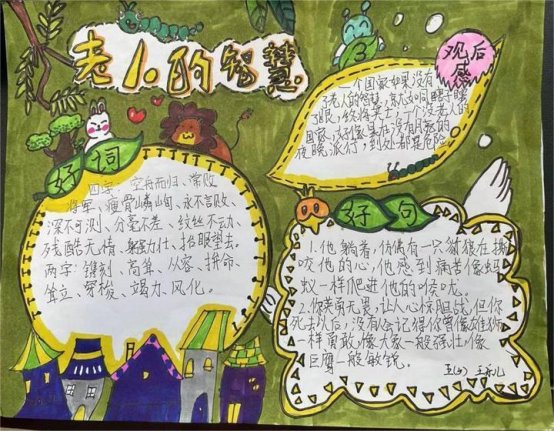 老人的智慧
观后感
一个国家如果没有
了老人的智慧,就如同瞎子瞎
了眼,蚊将失士,一个没老人的
国家,好像是在没有月亮的
夜晚旅行,到处都是危险
好词
四字:空舟而归、常败
将军、瘦骨嶙峋、永不言败、
深不可测、分毫不差、纹丝不动、
残酷无情、身强力壮、抬眼望去、
两字:镂刻、高耸、从容、拼命、
耸立、穿梭、竭力、风化。
好句
1.他躺着,仿佛有一只豺狼在撕
咬他的心,他感到痛苦像蚂
蚁一样爬进他的喉咙。
2.你英勇无畏,让人心惊胆战,但你
死去以后,没有人会记得你曾像雄狮
一样勇敢,像大象一般强壮,像
巨鹰一般敏锐。